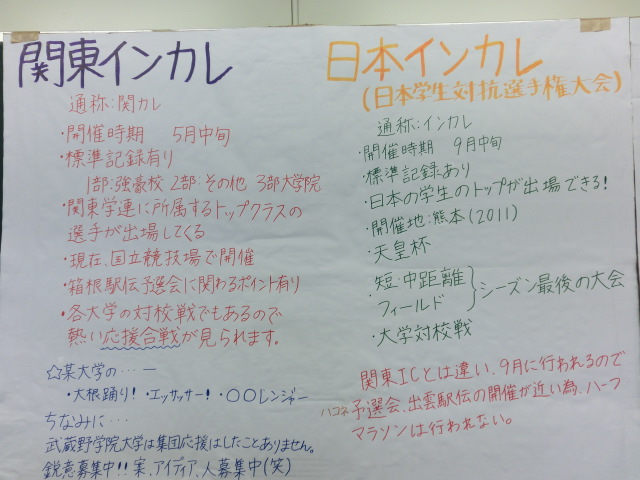 関東インカレ
通称:関カレ
・開催時期 5月中旬
・標準記録有り
1部:強豪校 2部:その他 3部大学院
・関東学連に所属するトップクラスの
選手が出場してくる
・現在、国立競技場で開催
・箱根駅伝予選会に関わるポイント有り
・各大学の対校戦でもあるので
熱い応援合戦が見られます。
☆某大学の…ー
・大根踊り!・エッサッサー!・〇〇レンジャー
ちなみに…
武蔵野学院大学は集団応援はしたことありません。
鋭意募集中!!案、アイディア、人募集中(笑)
日本インカレ
(日本学生対抗選手権大会)
通称:インカレ
・開催時期 9月中旬
・標準記録あり
・日本の学生のトップが出場できる!
・開催地:熊本(2011)
・天皇杯
・短・中距離
フィールド
}シーズン最後の大会
・大学対校戦
関東ICとは違い、9月に行われるので
ハコネ予選会、出雲駅伝の開催が近い為、ハーフ
マラソンは行われない。